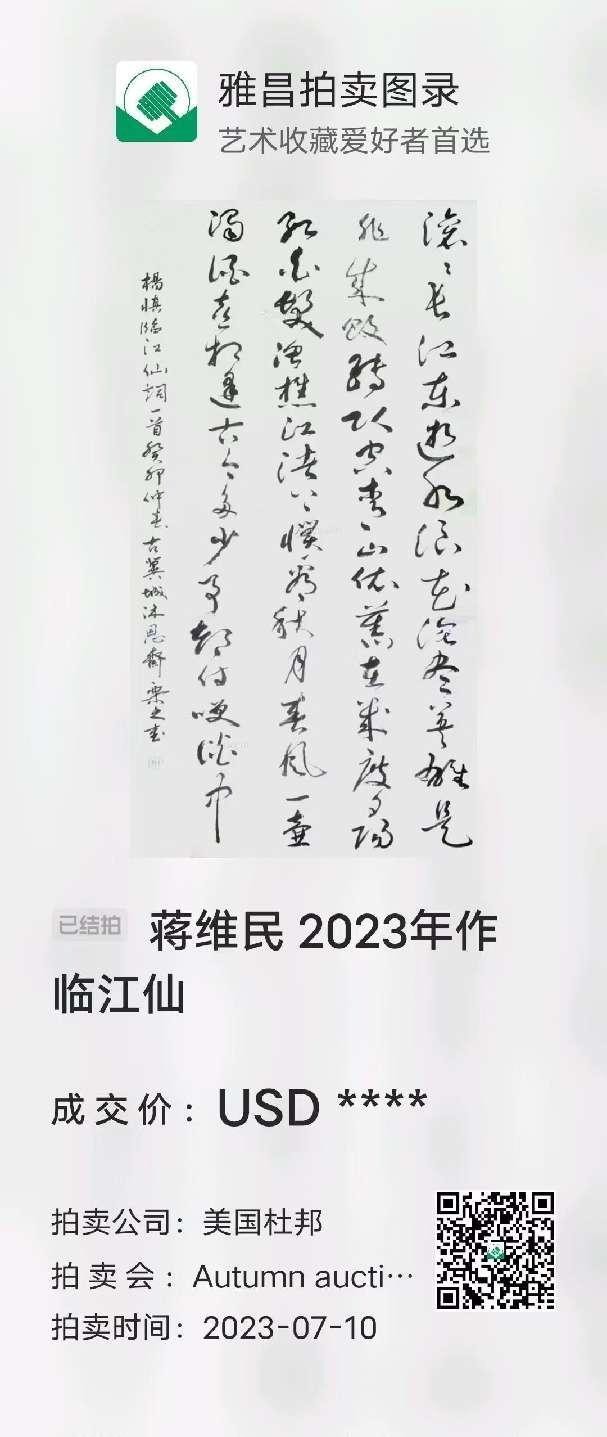 雅昌拍卖图录
艺术收藏爱好者首选
滚〻長江東逝水浪花淘尽英雄是
非成敗轉頭空青山依舊在幾度夕陽
紅白髮漁樵江渚上慣看秋月春風一壺
濁酒喜相逢古今多少事都付笑談中
楊慎臨江仙詞一首癸卯仲春古冀城沐恩齋
已结拍 蒋维民 2023年作
临江仙
成交价：USD ****
拍卖公司：美国杜邦
拍卖会：Autumn aucti…
拍卖时间：2023-07-10